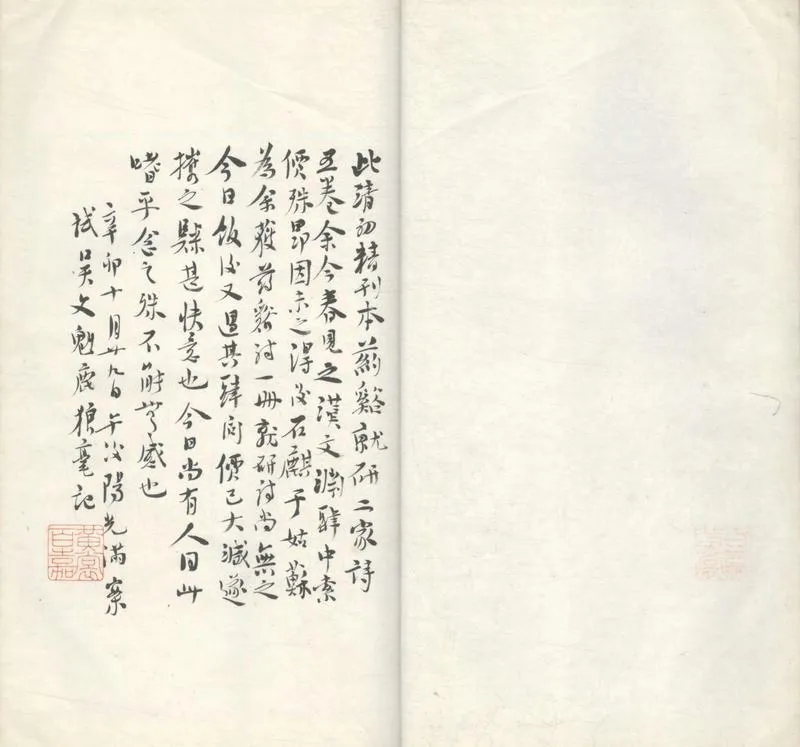 此清初精刊本药谿就研二家詩
五卷余今春見之漢文淵肆中索
價殊昂因未之得後石麒于姑蘇
為余獲药谿詩一冊就研詩尚無之
今日飯後又過其肆問價已大減遂
携之歸甚快意也今日尚有人同此
嗜乎念之殊不能無感也
辛卯十月廿九日午後陽光滿案
試吳文魁鹿狼毫記
黃裳
百嘉